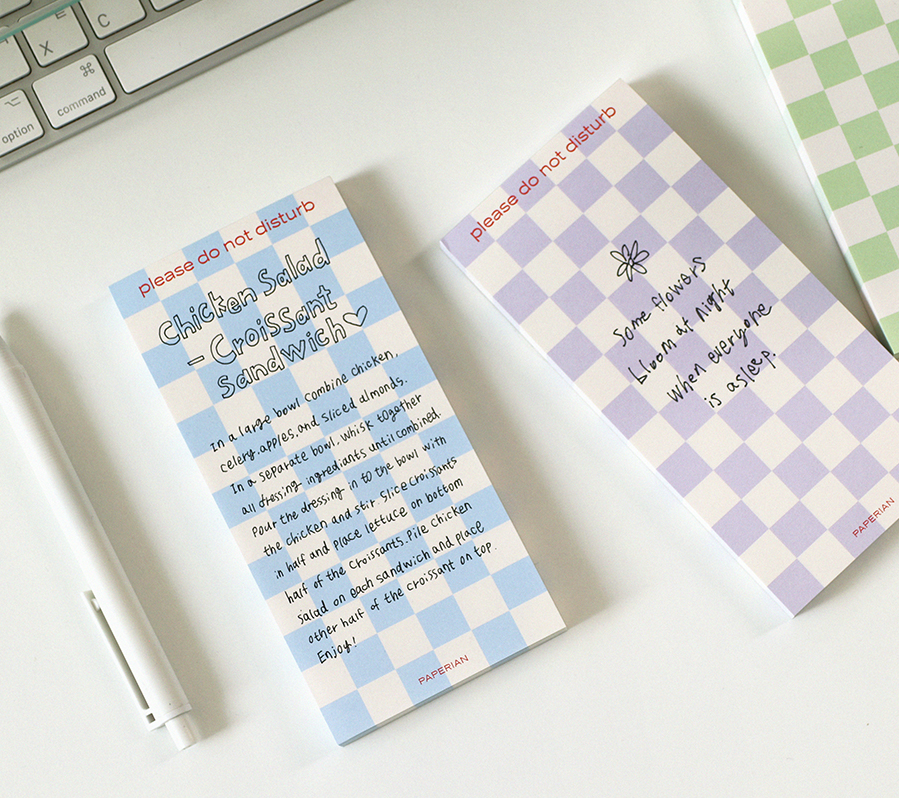 E
C
X
⌘
command
⌥
option
please do not disturb
Chicken Salad
- Croissant
Sandwich♡
In a large bowl combine chicken,
celery, apples, and sliced almonds.
In a separate bowl, whisk together
all dressing ingrediants until combined.
Pour the dressing in to the bowl with
the chicken and stir. Slice croissants
in half and place lettuce on bottom
half of the croissants. Pile chicken
salad on each sandwich and place
other half of the croissant on top.
Enjoy!
PAPERIAN
please do not disturb
Some flowers
bloom at night
when everyone
is asleep.
PAPERIAN